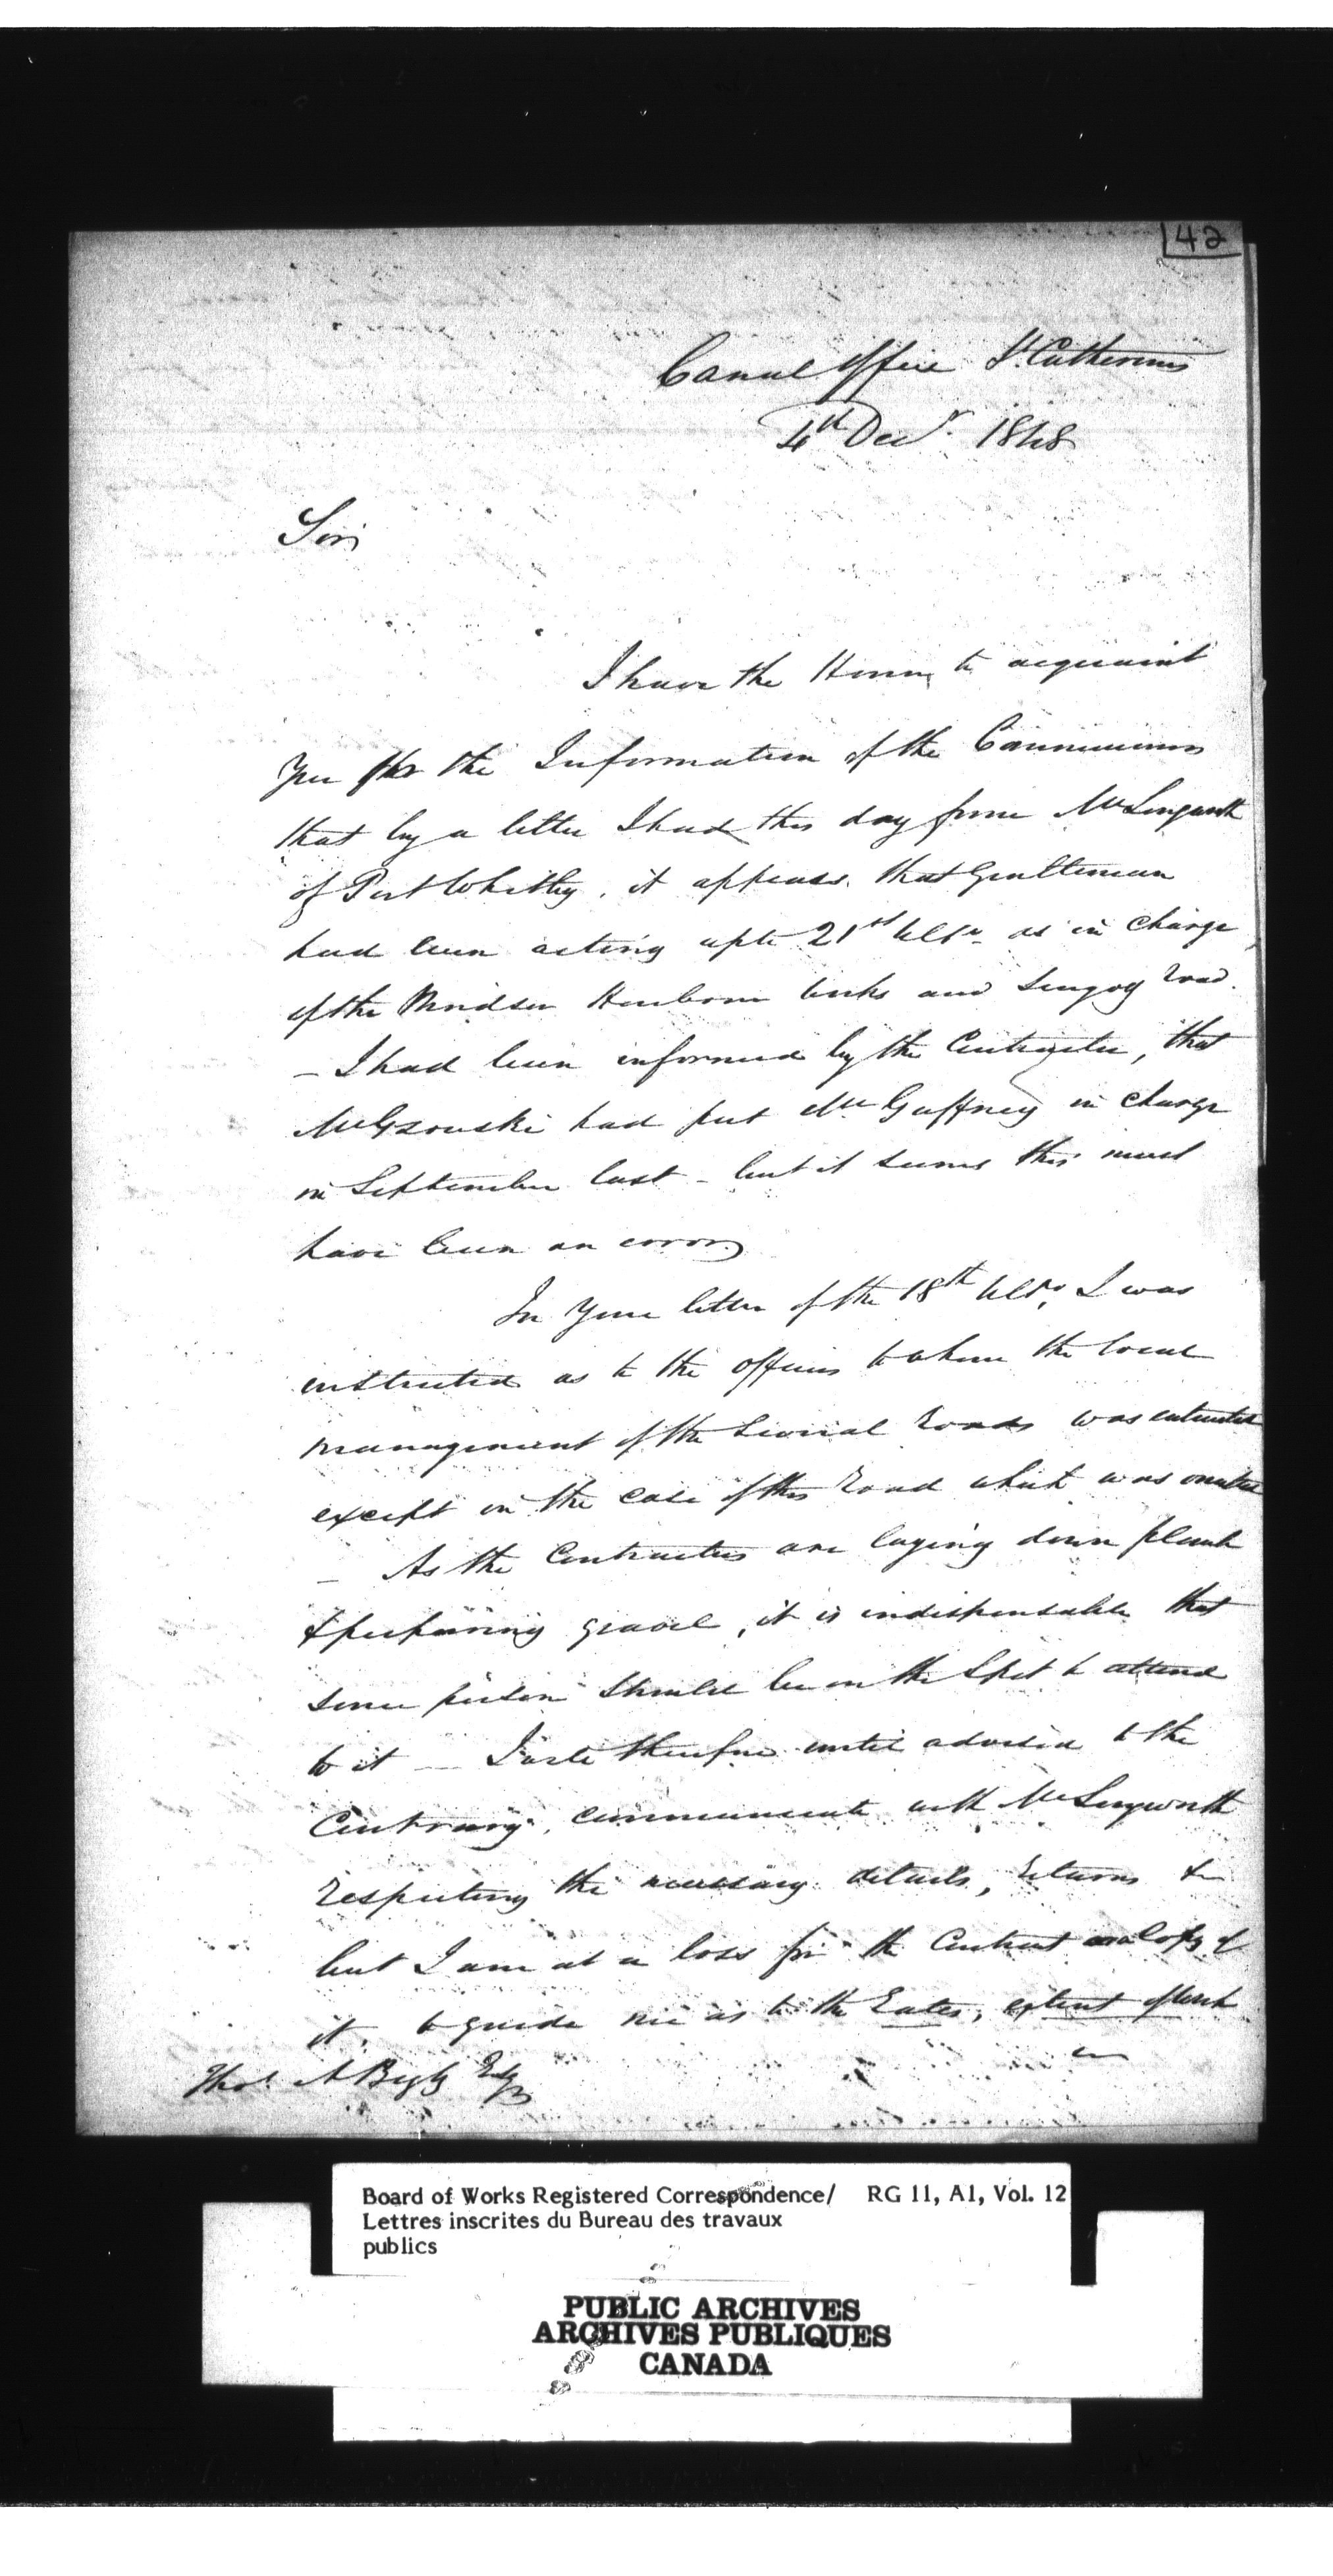 42
Canal Office St Catherines
4th Decr. 1848
Sir
I have the Honor to acquaint
You for the Information of the Commissioners
that by a letter I had this day from Mr
of Port Whitby, it appears that Gentleman
had been acting upto 21st Ulto as in charge
of the Windsor Harbour works and road.
— I had been informed by the Contractor, that
Mr Gzowski had put Mr Gaffney in charge
in September last — but it seems this must
have been an error
In Your letter of the 18th Ulto, I was
instructed as to the officers to whom the local
management of the several Roads was entrusted
except in the case of this road which was omitted
— As the Contractors are laying down plank
& preparing gravel, it is indispensable that
some person should be on the Spot to attend
to it — I therefore until advised to the
Contrary, communicate with Mr
respecting the necessary details, returns &
but I am at a loss for the Contract or a Copy of
it, to guide me as to the Rates, extent of work
Thos. A Begly Esqr
Board of Works Registered Correspondence/ RG 11, A1, Vol. 12
Lettres inscrites du Bureau des travaux
publics
PUBLIC ARCHIVES
ARCHIVES PUBLIQUES
CANADA